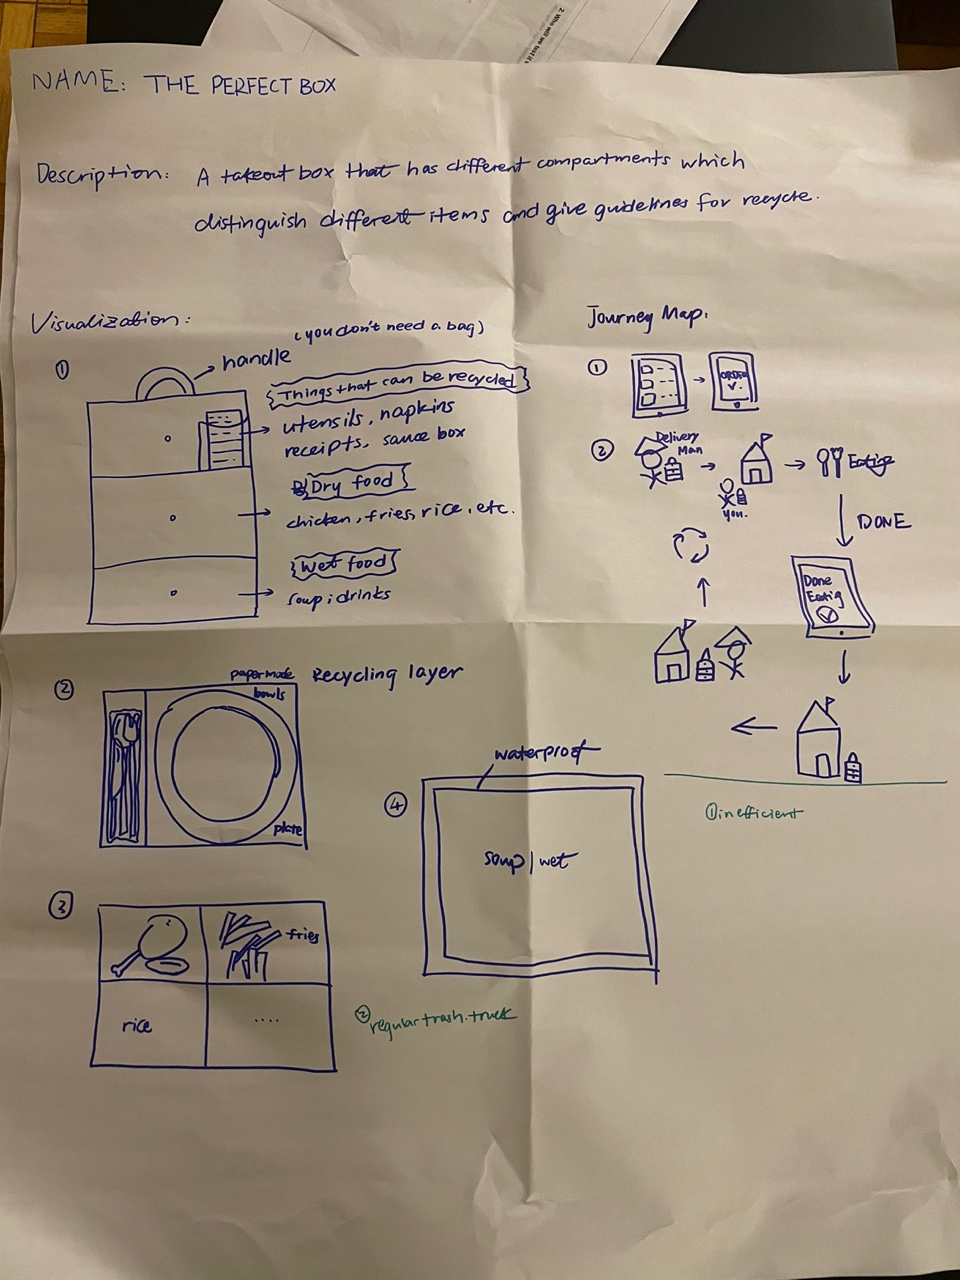 2. Who will we test it
NAME: THE PERFECT BOX
Description: A takeout box that has different compartments which
distinguish different items and give guidelines for recycle.
Visualization:
①
handle
(you don't need a bag)
Things that can be recycled
utensils, napkins
receipts, sauce box
Dry food
chicken, fries, rice, etc.
Wet food
soup; drinks
②
paper made
bowls
Recycling layer
plate
③
fries
rice
....
④
waterproof
soup/wet
② regular trash truck
Journey Map:
①
ORDER
②
Delivery
Man
you.
Eatig
DONE
Done
Eatig
① inefficient